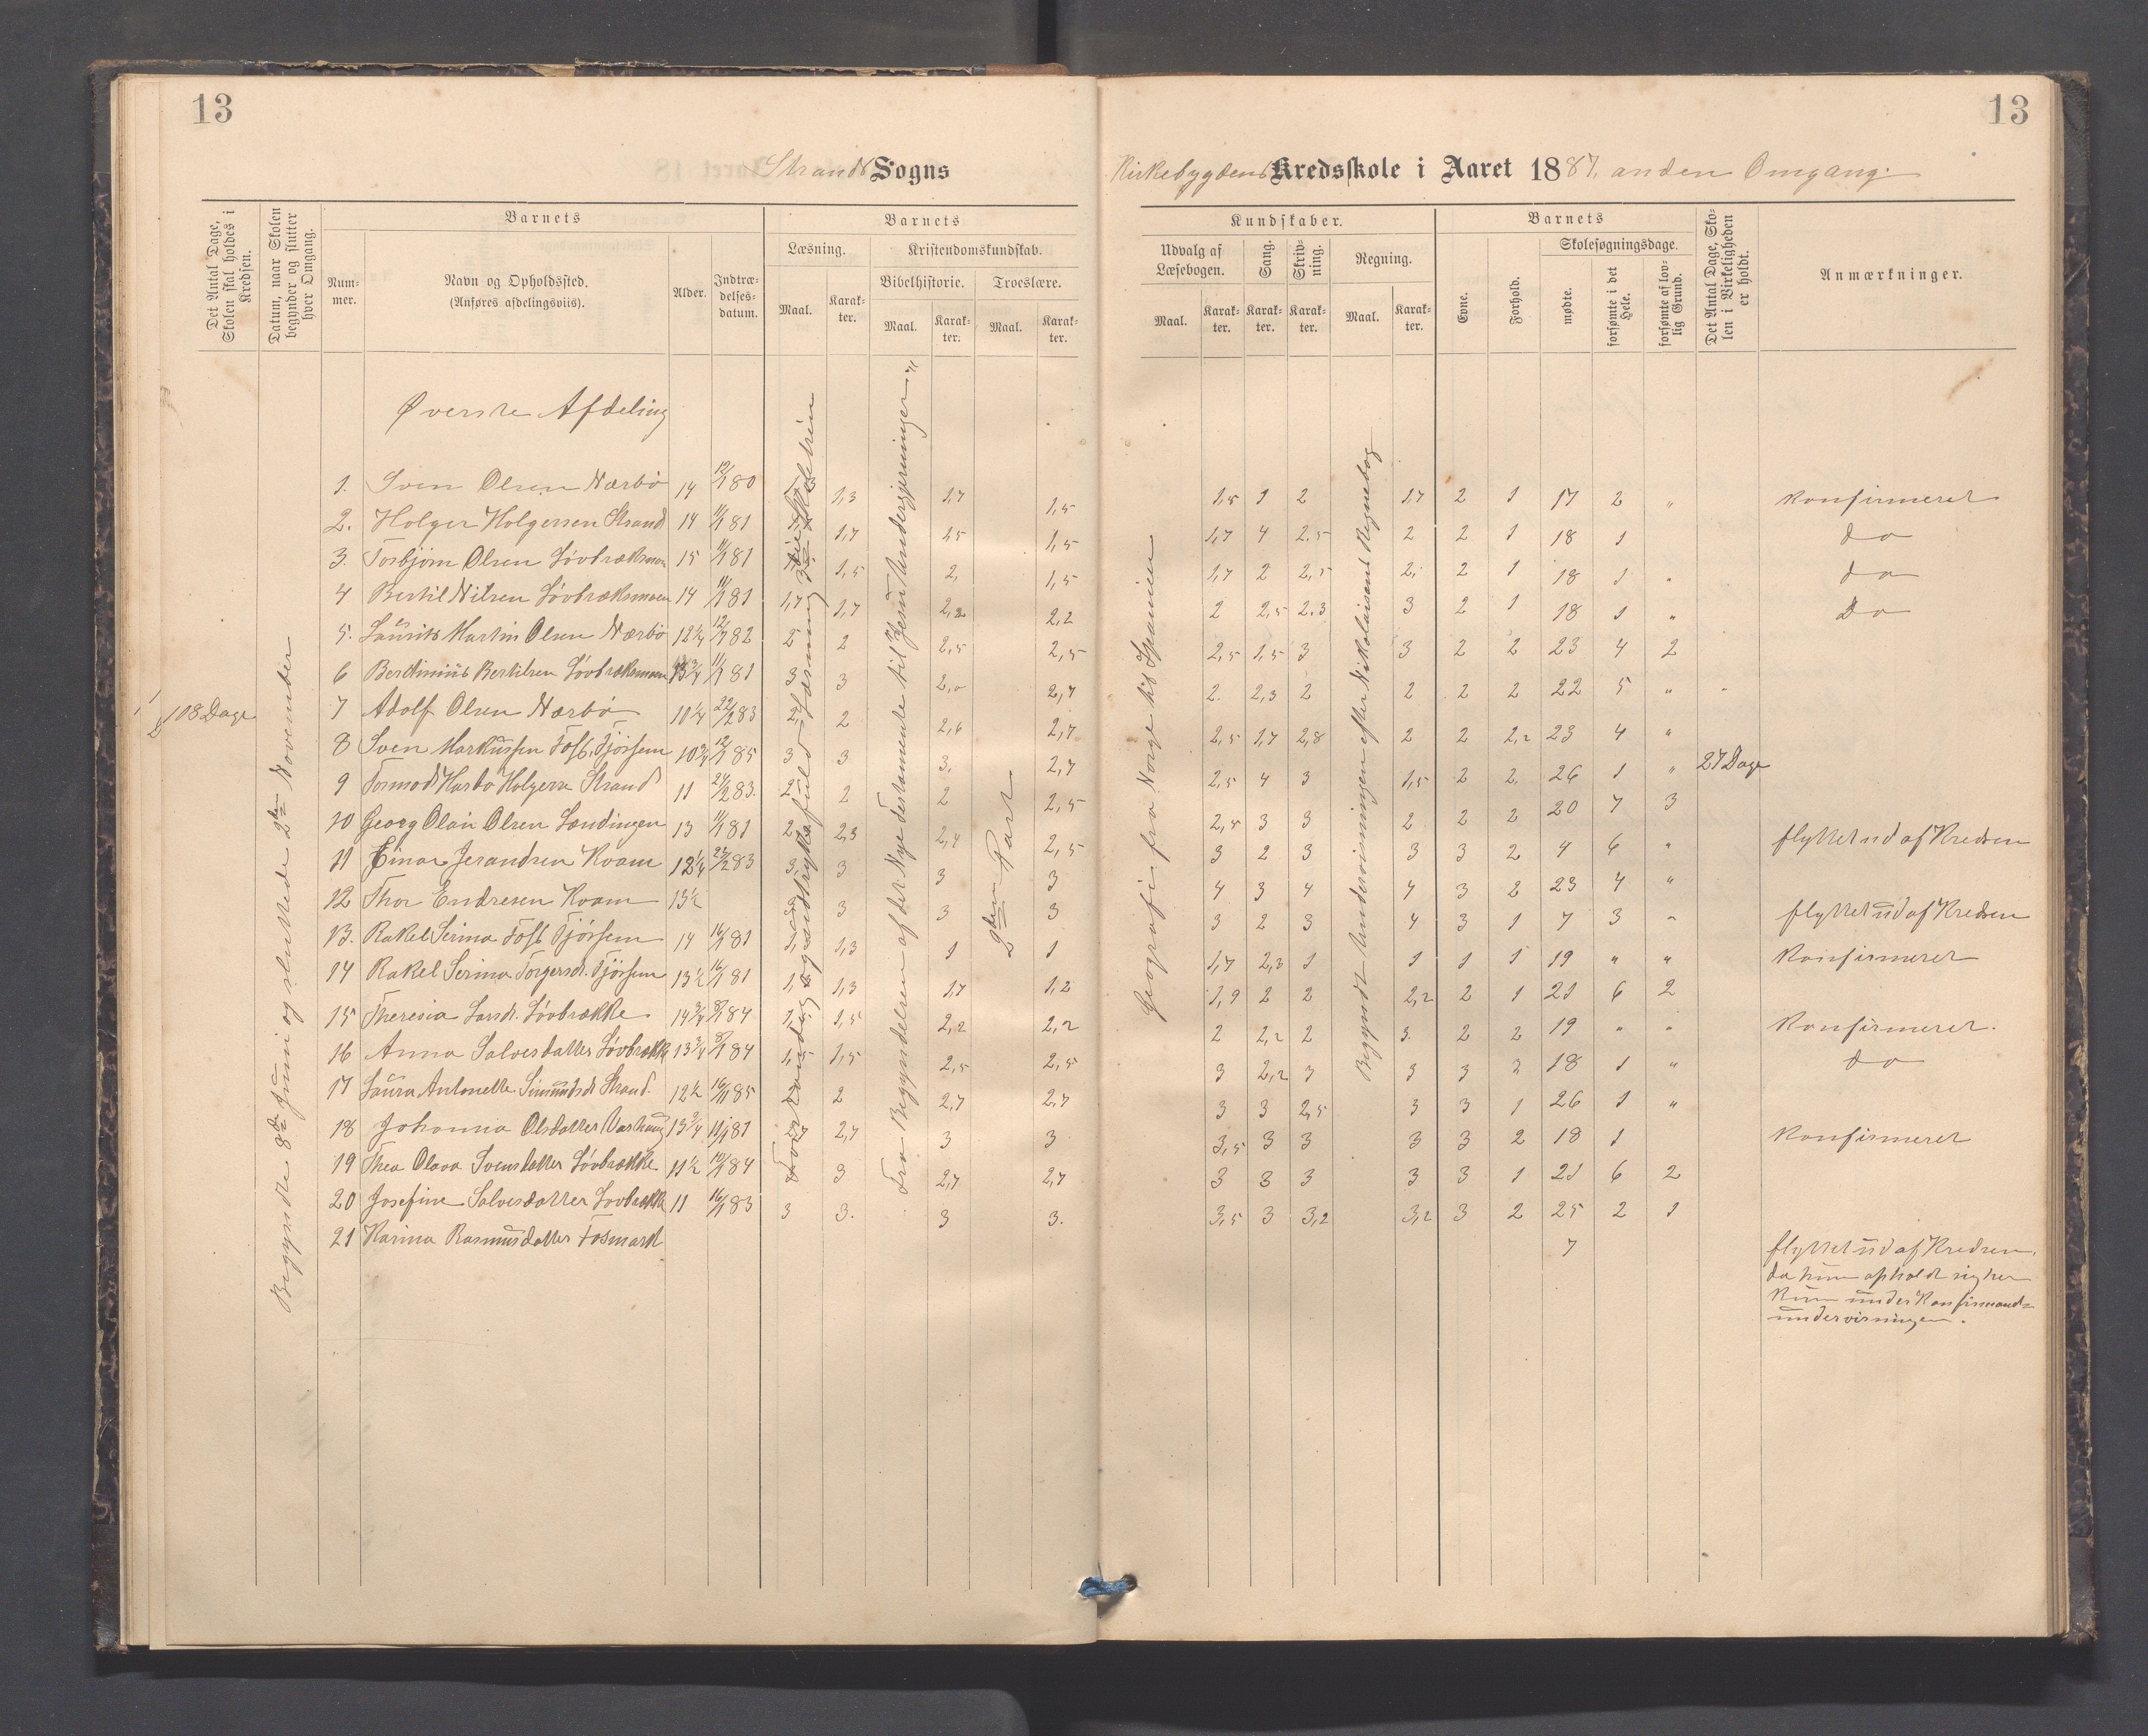 13
13
Strands Sogns
Kirkebygdens Kredsskole i Aaret 1887, anden Omgang.
Det Antal Dage, Skolen skal holdes i Kredsen.
Datum, naar Skolen begynder og slutter hver Omgang.
Barnets
Num-mer.
Navn og Opholdssted.
(Anføres afdelingsviis).
Alder.
Indtræ-delses-datum.
Barnets
Læsning.
Maal.
Karak-ter.
Kristendomskundskab.
Bibelhistorie.
Maal.
Karak-ter.
Troeslære.
Maal.
Karak-ter.
Kundskaber.
Udvalg af Læsebogen.
Maal.
Karak-ter.
Sang.
Karak-ter.
Skriv-ning.
Karak-ter.
Regning.
Maal.
Karak-ter.
Barnets
Evne.
Forhold.
Skolesøgningsdage.
mødte.
forsømte i det Hele.
forsømte af lov-lig Grund.
Det Antal Dage, Sko-len i Virkeligheden er holdt.
Anmærkninger.
108 Dage
Begyndte 8de Juni og sluttede 2den November
Øverste Afdeling
Fra Begyndelsen af det Nye Testamente til "Jesu Undergjerninger"
2den Part
Geografi fra Norge til Spanien
Begyndt Undervisningen efter Nikolaisens Regnebog
27 Dage
1. Sven Olsen Nærbö 14 12/1 80 1,3 1,7 1,5 1,5 1 2 1,7 2 1 17 2 " Konfirmeret
2. Holger Holgersen Strand 14 11/1 81 1,7 1,5 1,5 1,7 4 2.5 2 2 1 18 1 do
3. Torbjörn Olsen Lövbræksmoen 15 11/1 81 1,5 2, 1,5 1,7 2 2,5 2, 2 1 18 1 " do
4 Bertil Nilsen Lövbræksmoen 14 11/1 81 1,7 1,7 2,2 2,2 2 2,5 2.3 3 2 1 18 1 " Do
5. Laurits Martin Olsen Nærbö 12 1/4 12/1 82 2 2 2,5 2,5 2,5 1,5 3 3 2 2 23 4 2
6 Bertinius Bertilsen Lövbræksmoen 11/1 81 3 3 2,7 2. 2,3 2 2 2 2 22 5 "
7 Adolf Olsen Nærbö 10 1/4 22/2 83 2, 2 2,6 2,7 2,5 1,7 2,8 2 2 2,2 23 4 "
8 Sven Markussen Tjössem 10 3/4 12/1 85 3 3 3, 2,7 2,5 4 3 1,5 2 2 26 1 "
9 Tormod Holgersen Strand 11 24/2 83. 2 2 2 2,5 2,5 3 3 2 2 2 20 7 3
10 Georg Olai Olsen Lændingen 13 11/1 81 2 2,3 2,4 2,5 3 2 3 3 3 2 4 6 " flyttet ud af Kredsen
11 Einar Roam 12 1/4 83 3, 3 3 3 4 3 4 4 3 2 23 4 "
12 Thor Endresen Roam 13 1/2 3 3 3 3 2 3 4 3 1 7 3 " flyttet ud af Kredsen
13. Rakel Serina Tjössem 14 14/1 81 1,3 1 1 1,7 2,3 1 1 1 1 19 " " Konfirmeret
14 Rakel Serina Torgersdr. Tjössem 13 1/2 16/1 81 1,3 1,7 1,2 1,9 2 2 2,2 2 1 21 6 2
15 Theresia Larsdr. Lövbrække 14 3/4 8/1 84 1,5 2,2 2,2 2 2,2 2 3. 2 2 19 " " Konfirmeret.
16 Anna Salvesdatter Lövbrække 13 3/4 8/1 84 1,5 1,5 2,5 2,5 3 2,2 3 3 3 3 18 1 " do
17 Laura Antonette Simundsdr Strand. 12 1/2 16/11 85 2 2,7 2,7 3 3 2,5 3 3 1 26 1 "
18 Johanna Olsdatter Varhaug 13 3/4 11/1 81 2,7 3 3 3,5 3 3 3 3 2 18 1 Konfirmeret
19 Thea Olava Svensdatter Lövbrække 11 1/2 10/1 84 3 2,7 2,7 3 3 3 3 3 1 21 6 2
20 Josefine Salvesdatter Lovbrække 11 16/1 83 3 3. 3 3. 3,5 3 3,2 3,2 3 2 25 2 1
21 Karina Rasmusdatter Fosmark 7 flyttet ud af Kredsen,
da hun opholdt sig her
kun under Konfirmand-
undervisningen.